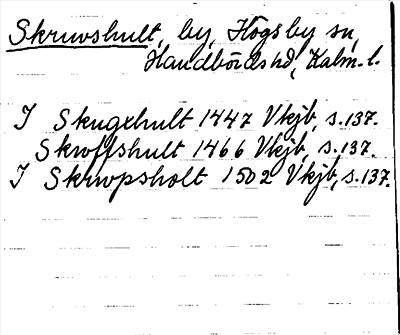 Skruvshult, by, Högsby sn,
Handbörds hd, Kalm. l.
I Skugxhult 1447 Vkjb, s. 137.
Skroffshult 1466 Vkjb, s. 137.
I Skrwpsholt 1502 Vkjb, s. 137.